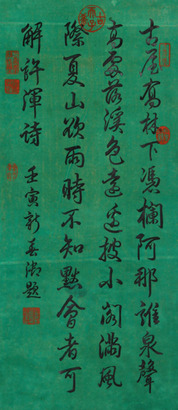 古屋高林下憑欄阿那誰泉聲
高處落溪色遠披小閣滿風
際夏山欲雨時不知默會者可
解許渾詩 壬寅新春御題